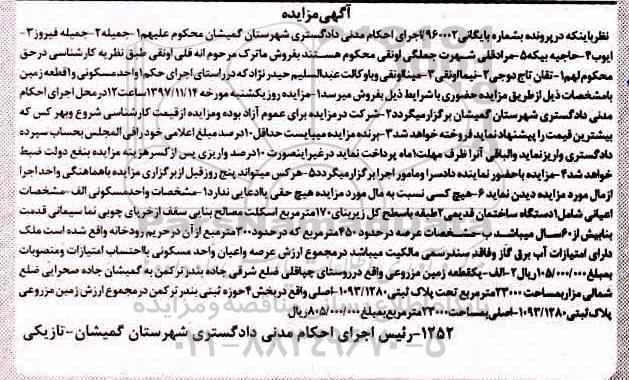 آگهی مزایده
نظر باینکه در پرونده بشماره بایگانی ۹۶۰۰۰۲/اجرای احکام مدنی دادگستری شهرستان گمیشان محکوم علیهم ۱-جمیله ۲-جمیله فیروز ۳-
ایوب ۴-حاجیه بیکه ۵-مرادقلی شهرت جملگی اونقی محکوم هستند بفروش ماترک مرحوم انه قلی اونقی طبق نظریه کارشناسی در حق
محکوم لهم ۱-تقان تاج دوجی ۲-نیما اونقی ۳-مینا اونقی وبا وکالت عبدالسلیم حیدر نژاد که در راستای اجرای حکم ۱واحد مسکونی و ۱قطعه زمین
بامشخصات ذیل از طریق مزایده حضوری با شرایط ذیل بفروش میرسد ۱-مزایده روز یکشنبه مورخه ۱۳۹۷/۱۱/۱۴ساعت ۱۲در محل اجرای احکام
مدنی دادگستری گمیشان برگزار میگردد ۲-شرکت در مزایده برای عموم آزاد بوده و مزایده از قیمت کارشناسی شروع و بهر کس که
بیشترین قیمت را پیشنهاد نماید فروخته خواهد شد ۳-برنده مزایده میبایست حداقل ۱۰درصد مبلغ اعلامی خود را فی المجلس بحساب سپرده
دادگستری واریز نماید والباقی آنرا ظرف مهلت ۱ماه پرداخت نماید در غیر اینصورت ۱۰درصد واریزی پس از کسر هزینه مزایده بنفع دولت ضبط
خواهد شد ۴-مزایده با حضور نماینده دادسرا و مامور اجرا برگزار میگردد ۵-هرکس میتواند پنج روز قبل از برگزاری مزایده با هماهنگی واحد اجرا
از مال مورد مزایده دیدن نماید ۶-هیچ کسی نسبت به مال مورد مزایده هیچ حقی یا ادعایی ندارد ۱-مشخصات واحد مسکونی الف-مشخصات
اعیانی شامل ۱دستگاه ساختمان قدیمی ۲طبقه با سطح کل زیربنای ۱۷۰مترمربع اسکلت مصالح بنایی سقف از خرپای چوبی نما سیمانی قدمت
بنا بیش از ۶۰سال میباشد ب-مشخصات عرصه در حدود ۴۵۰مترمربع که در حدود ۳۰۰مترمربع از آن در حریم رودخانه واقع شده است ملک
دارای امتیازات آب برق گاز و فاقد سند رسمی مالکیت میباشد در مجموع ارزش عرصه واعیان واحد مسکونی با احتساب امتیازات و منصوبات
بمبلغ ۱۰۵/۰۰۰/۰۰۰ریال ۲-الف-یکقطعه زمین مزروعی واقع در روستای چپاقلی ضلع شرقی جاده بندر ترکمن به گمیشان جاده صحرایی ضلع
شمالی مزار بمساحت ۲۳۰۰۰مترمربع تحت پلاک ثبتی ۱۰۹۳/۱۲۸۰-اصلی واقع در بخش ۴حوزه ثبتی بندر ترکمن در مجموع ارزش زمین مزروعی
پلاک ثبتی ۱۰۹۳/۱۲۸۰-اصلی بمساحت ۲۳۰۰۰مترمربع بمبلغ ۸۰۵/۰۰۰/۰۰۰ریال
۱۲۵۲-رئیس اجرای احکام مدنی دادگستری شهرستان گمیشان-تازیکی
۰۲۱-۸۸۳۴۹۶۷۰-۵